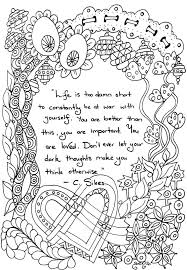 "Life is too damn short
to constantly be at war with
yourself. You are better than
this, you are important. You
are loved. Don't ever let your
dark thoughts make you
think otherwise"
- C. Sikes